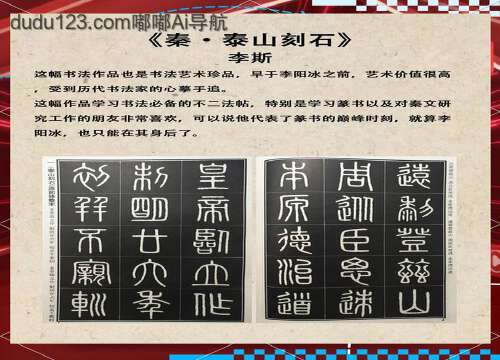 dudu123.com嘟嘟Ai导航
《秦·泰山刻石》
李斯
这幅书法作品也是书法艺术珍品，早于李阳冰之前，艺术价值很高
，受到历代书法家的心摹手追。
这幅作品学习书法必备的不二法帖，特别是学习篆书以及对秦文研
究工作的朋友非常喜欢，可以说他代表了篆书的巅峰时刻，就算李
阳冰，也只能在其身后了。
皇帝臨立作
制明廿六年
初并不親輒
遠黎登茲山
周臣思迹
本原德治道